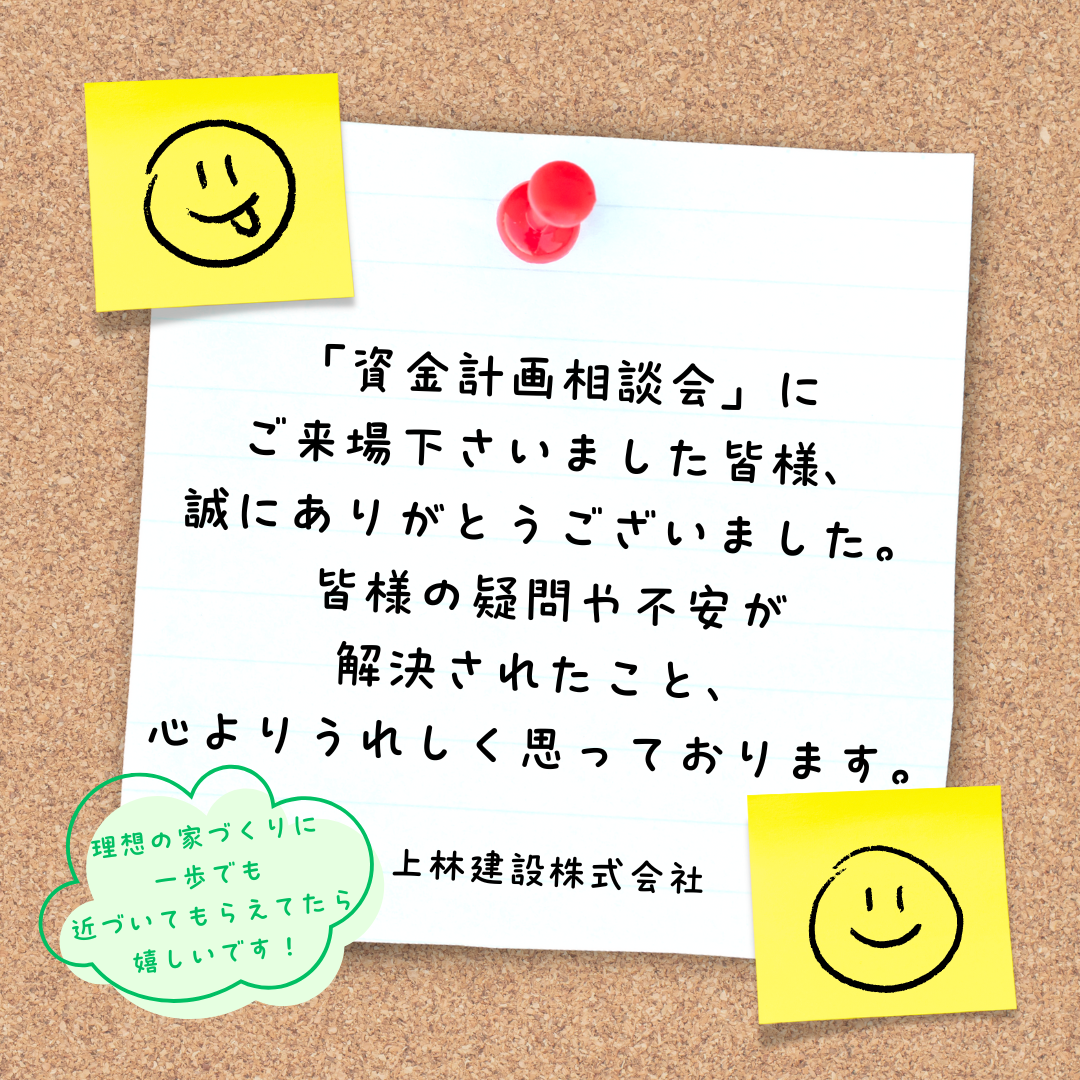 「資金計画相談会」に
ご来場下さいました皆様、
誠にありがとうございました。
皆様の疑問や不安が
解決されたこと、
心よりうれしく思っております。
上林建設株式会社
理想の家づくりに
一歩でも
近づいてもらえてたら
嬉しいです！